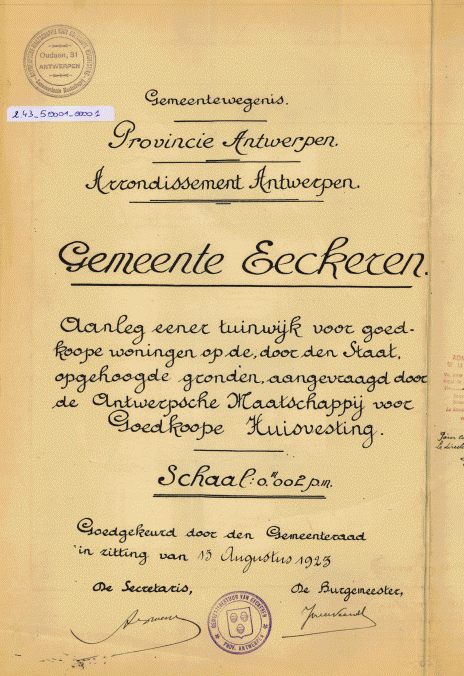 Oudaan, 31
ANTWERPEN
243_50001_00001
Gemeentewegenis.
Provincie Antwerpen.
Arrondissement Antwerpen.
Gemeente Eeckeren.
Aanleg eener tuinwijk voor goed-
koope woningen op de, door den Staat,
opgehoogde gronden, aangevraagd door
de Antwerpsche Maatschappij voor
Goedkoope Huisvesting.
Schaal: 0.m002 p.m.
Goedgekeurd door den Gemeenteraad
in zitting van 13 Augustus 1923
De Secretaris, De Burgemeester,
GEMEENTEBESTUUR VAN EECKEREN
PROV. ANTWERPEN